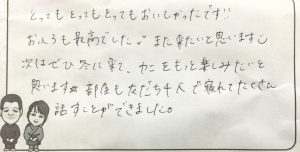 とってもとってもとってもおいしかったです!!
おふろも最高でした♡また来たいと思います
次はぜひ冬に来て、カニをもっと楽しみたいと
思います☆部屋も友だち4人で疲れてたくさん
話すことができました。